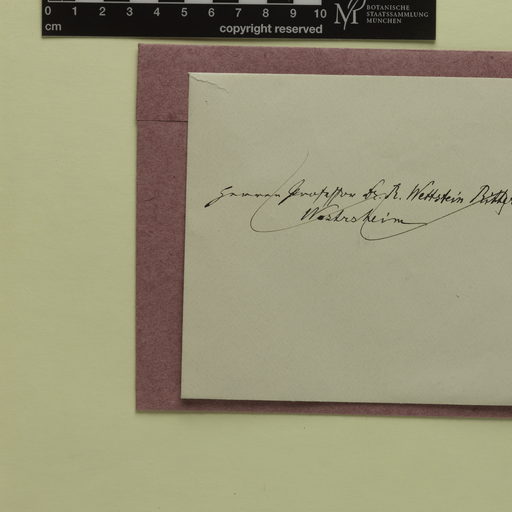 0 1 2 3 4 5 6 7 8 9 10
cm
copyright reserved
BOTANISCHE
STAATSSAMMLUNG
MÜNCHEN
Herren Professor Dr. R. Wettstein Ritter